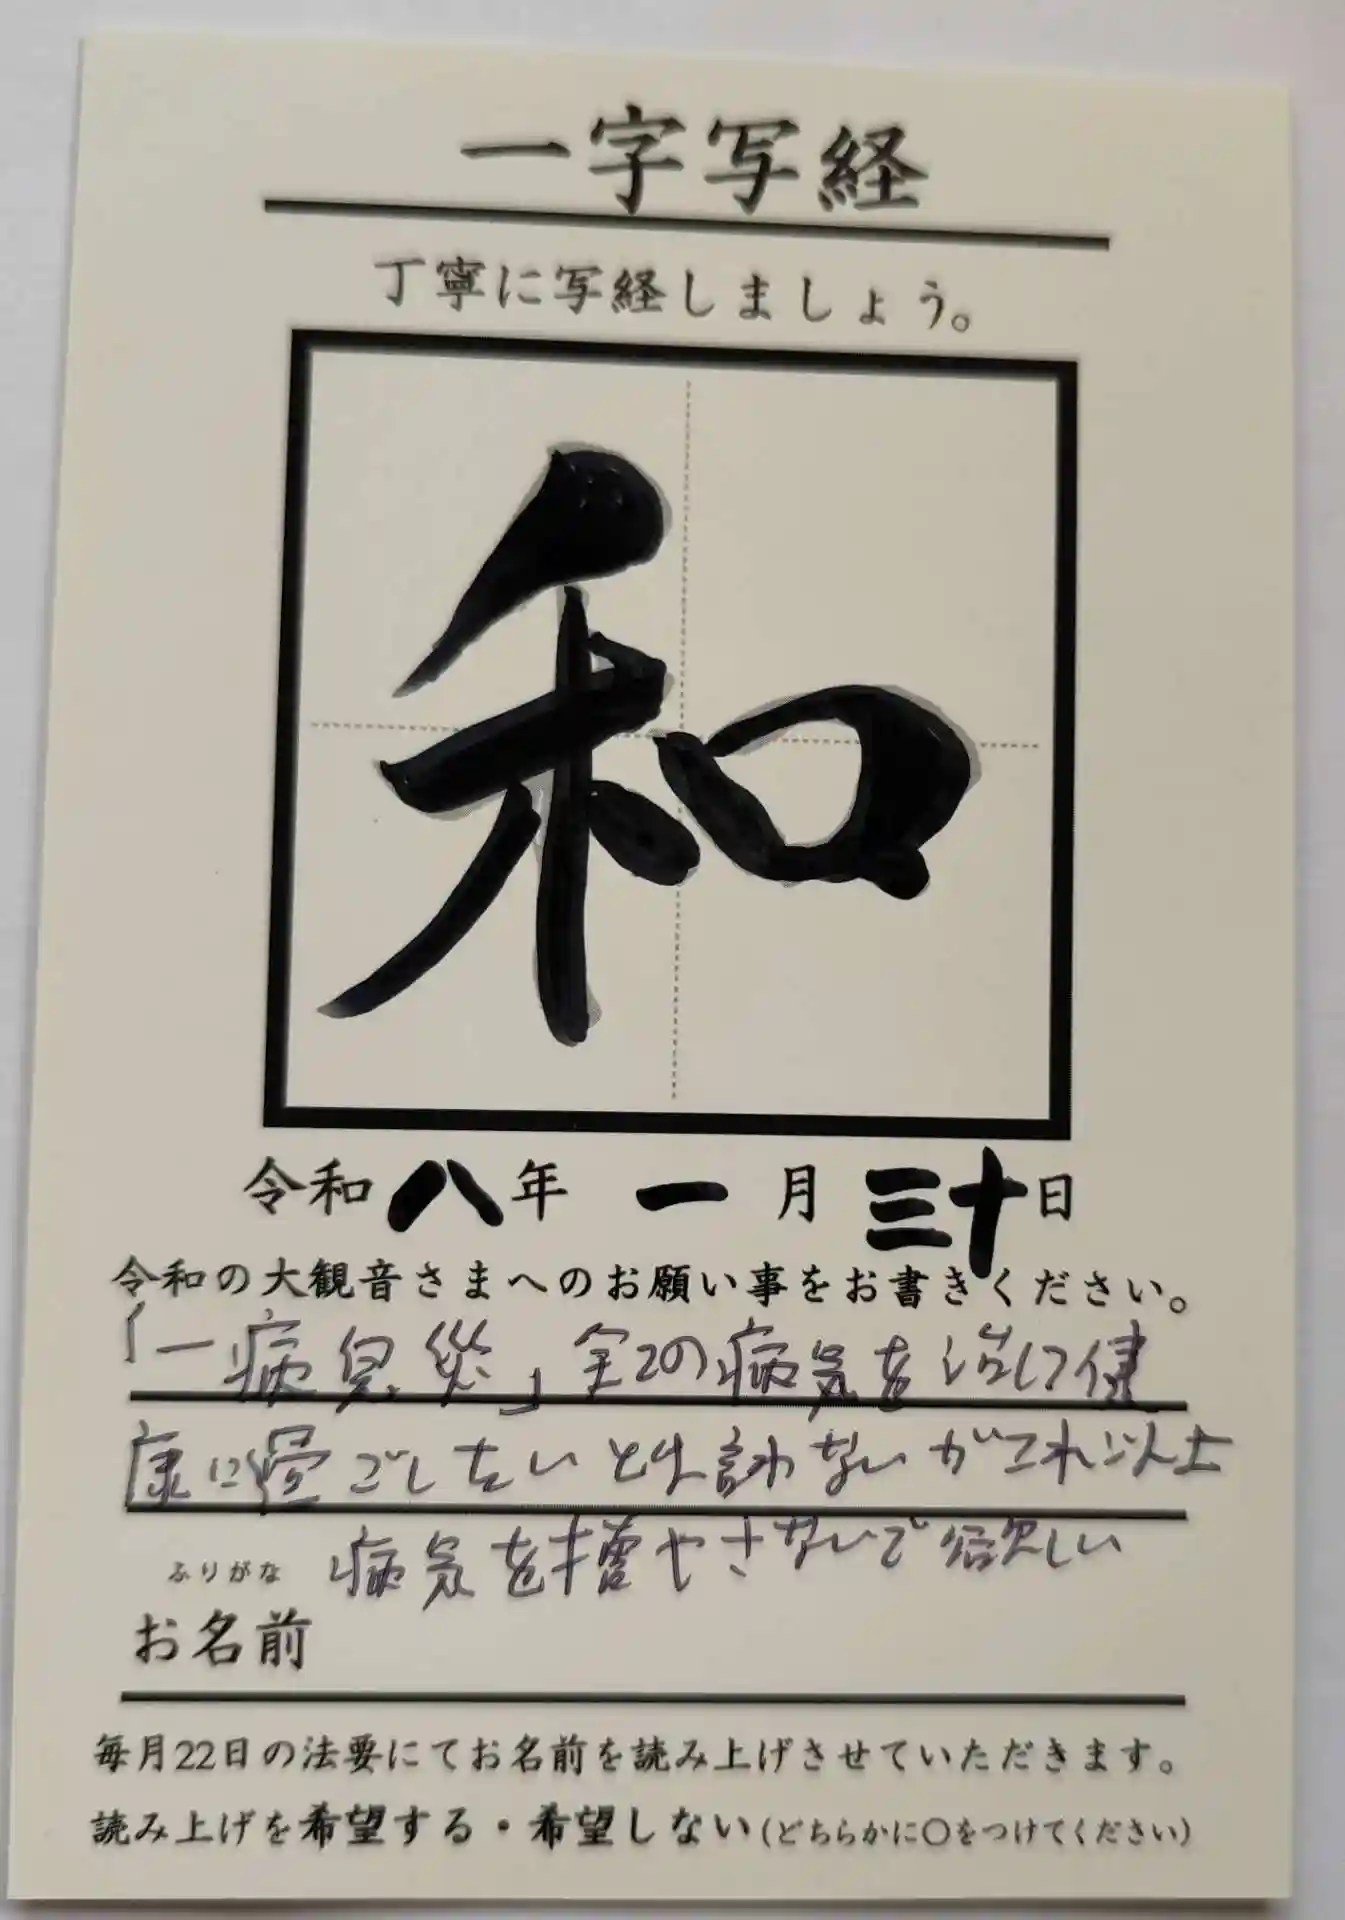 一字写経
丁寧に写経しましょう。
和
令和八年 一月 三十日
令和の大観音さまへのお願い事をお書きください。
「一病息災」全ての病気を治して健
康に過ごしたいとは言わないがこれ以上
病気を増やさないで欲しい
ふりがな
お名前
毎月22日の法要にてお名前を読み上げさせていただきます。
読み上げを希望する・希望しない(どちらかに〇をつけてください)